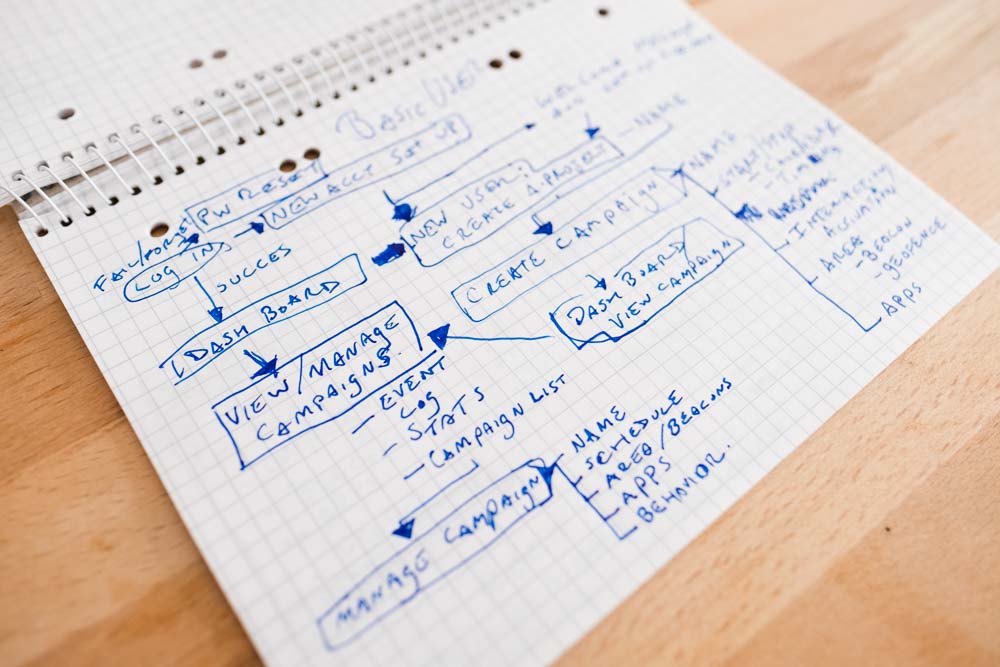 BASIC USER
WELCOME
FAIL/FORGET
PW RESET
NEW ACCT SET UP
LOG IN
SUCCES
DASH BOARD
NEW USER:
CREATE A PROJECT
- NAME
CREATE CAMPAIGN
NAME
INTERACTION
AREA
- BEACON
- GEOFENCE
APPS
DASH BOARD/
VIEW CAMPAIGN
VIEW/MANAGE
CAMPAIGNS.
- EVENT
LOG
- STATS
- CAMPAIGN LIST
MANAGE CAMPAIGN
NAME
SCHEDULE
AREA/BEACONS
APPS
BEHAVIOR.